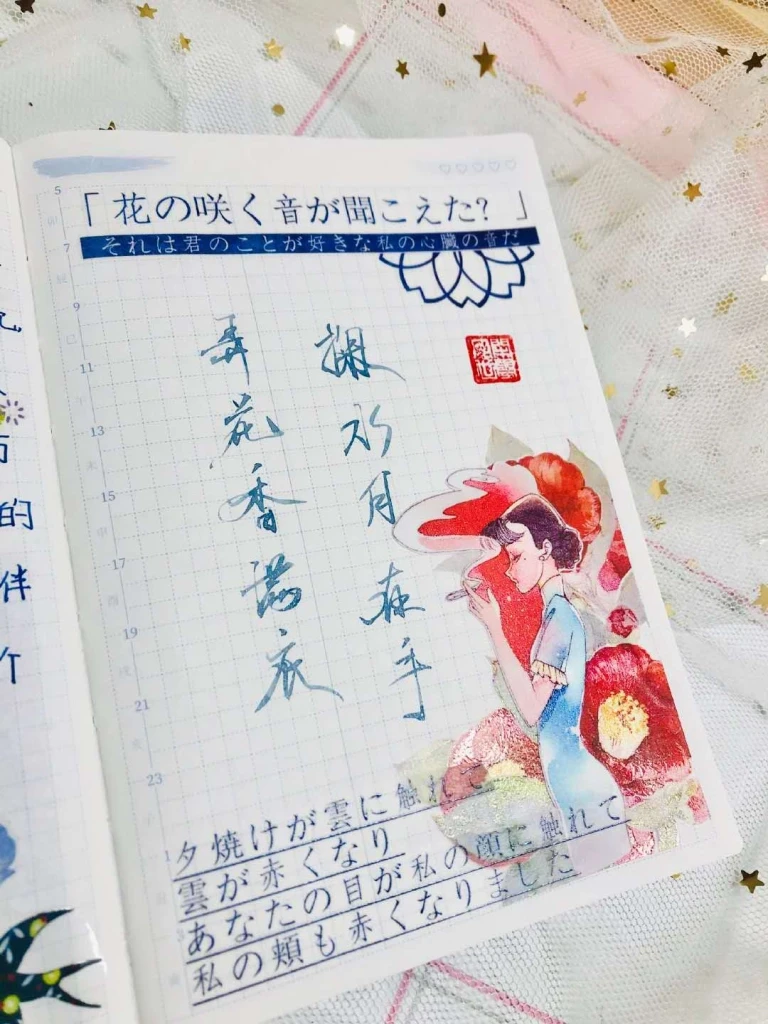 的
伴
「花の咲く音が聞こえた？」
それは君のことが好きな私の心臓の音だ
掬水月在手
弄花香满衣
5
7
9
11
13
15
17
19
21
23
夕焼けが雲に触れて
雲が赤くなり
あなたの目が私の顔に触れて
私の頬も赤くなりました